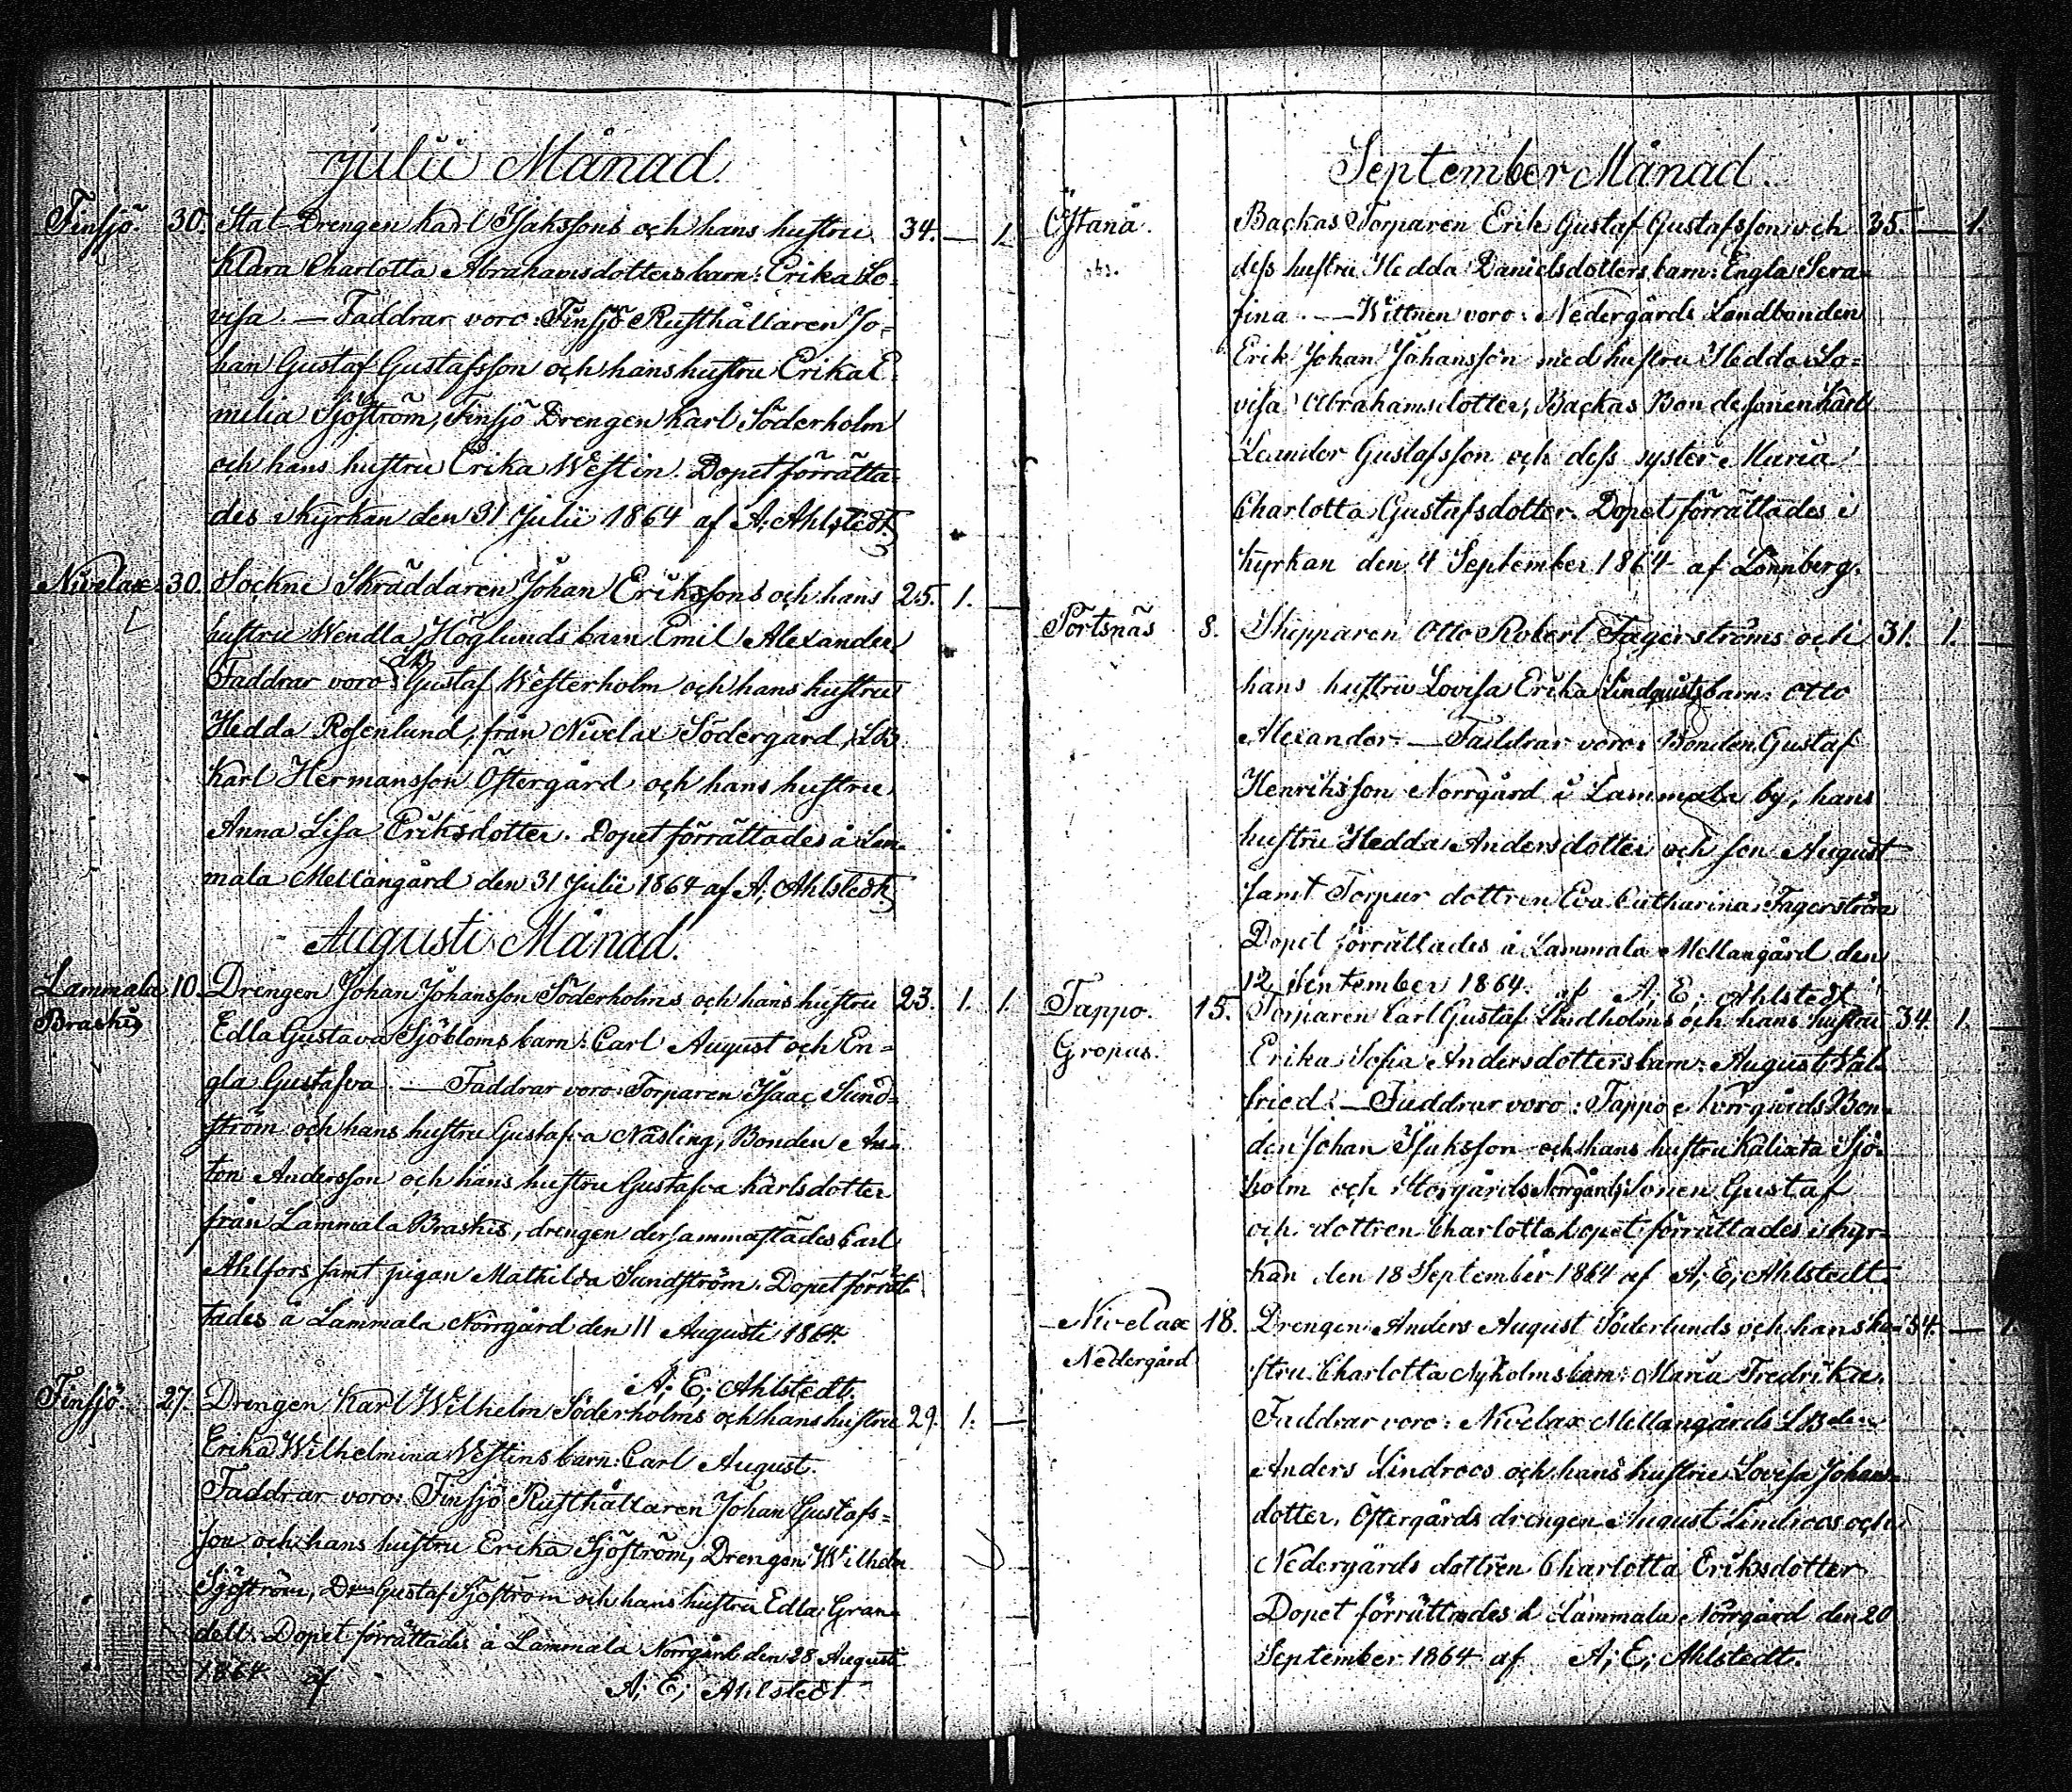 Julii Månad.
Finsjö. 30. Stat-Drengen Karl Isakssons och hans hustru 34. — 1.
Klara Charlotta Abrahamsdotters barn: Erika Lo=
visa. — Faddrar voro: Finsjö Rusthållaren Jo=
han Gustaf Gustafsson och hans hustru Erika E=
milia Sjöström, Finsjö Drengen Karl Söderholm
och hans hustru Erika Westin. Dopet förrätta=
des i kyrkan den 31 Julii 1864 af A; Ahlstedt.
Nivelax. 30. Sockne Skräddaren Johan Erikssons och hans 25. 1. —
hustru Wendla Höglunds barn Emil Alexander
Faddrar voro Gustaf Westerholm och hans hustru
Hedda Rosenlund, från Nivelax Södergård, LB
Karl Hermansson Östergård och hans hustru
Anna Lisa Eriksdotter. Dopet förrättades å Lam=
mala Mellangård den 31 Julii 1864 af A; Ahlstedt.
Augusti Månad.
Lammala 10. Drengen Johan Johansson Söderholms och hans hustru 23. 1. 1.
Braskis Edla Gustava Sjöbloms barn: Carl August och En=
gla Gustafva. — Faddrar voro: Torparen Isaac Sund=
ström och hans hustru Gustafva Näsling, Bonden An=
ton Andersson och hans hustru Gustafva Karlsdotter
från Lammala Braskis, drengen dersammastädes Carl
Ahlfors samt pigan Mathilda Sundström. Dopet förrät
tades å Lammala Norrgård den 11 Augusti 1864.
A; E; Ahlstedt.
Finsjö. 27. Drengen Karl Wilhelm Söderholms och hans hustru 29. 1. —
Erika Wilhelmina Westins barn: Carl August.
Faddrar voro: Finsjö Rusthållaren Johan Gustafs=
son och hans hustru Erika Sjöström, Drengen Wilhelm
Sjöström, Gustaf Sjöström och hans hustru Edla Gran=
dell. Dopet förrättades å Lammala Norrgård den 28 Augusti
1864 af A; E; Ahlstedt
September Månad.
Östanå. Backas Torparen Erik Gustaf Gustafsson och 35. — 1.
dess hustru Hedda Danielsdotters barn: Engla Sera=
fina. — Wittnen voro: Nedergårds Landbonden
Erik Johan Johansson med hustru Hedda Lo=
visa Abrahamsdotter, Backas Bondesonen Karl
Leander Gustafsson och dess syster Maria
Charlotta Gustafsdotter. Dopet förrättades i
Kyrkan den 4 September 1864 af Lönnberg.
Pörtsnäs 8. Skepparen Otto Robert Fagerströms och 31. 1. —
hans hustru Lovisa Erika Lindqvists barn: Otto
Alexander. — Faddrar voro: Bonden Gustaf
Henriksson Norrgård i Lammala by, hans
hustru Hedda Andersdotter och son August
samt Torpar dottren Eva Catharina Fagerström
Dopet förrättades å Lammala Mellangård den
12 September 1864. af A; E; Ahlstedt
Tappo. 15. Torparen Carl Gustaf Lindholms och hans hustru 34. 1. —
Gropas. Erika Sofia Andersdotters barn: August Val=
fried. — Faddrar voro: Tappo Norrgårds Bon=
den Johan Isaksson och hans hustru Kalixta Sjö=
holm och Norrgårds Sonen Gustaf
och dottren Charlotta. Dopet förrättades i kyr=
kan den 18 September 1864 af A; E; Ahlstedt.
Nivelax 18. Drengen Anders August Söderlunds och hans hu= 34. — 1.
Nedergård stru Charlotta Nyholms barn: Maria Fredrika.
Faddrar voro: Nivelax Mellangårds LBden
Anders Lindroos och hans hustru Lovisa Johans=
dotter, Östergårds drengen August Lindroos och
Nedergårds dottren Charlotta Eriksdotter
Dopet förrättades å Lammala Norrgård den 20
September 1864 af A; E; Ahlstedt.